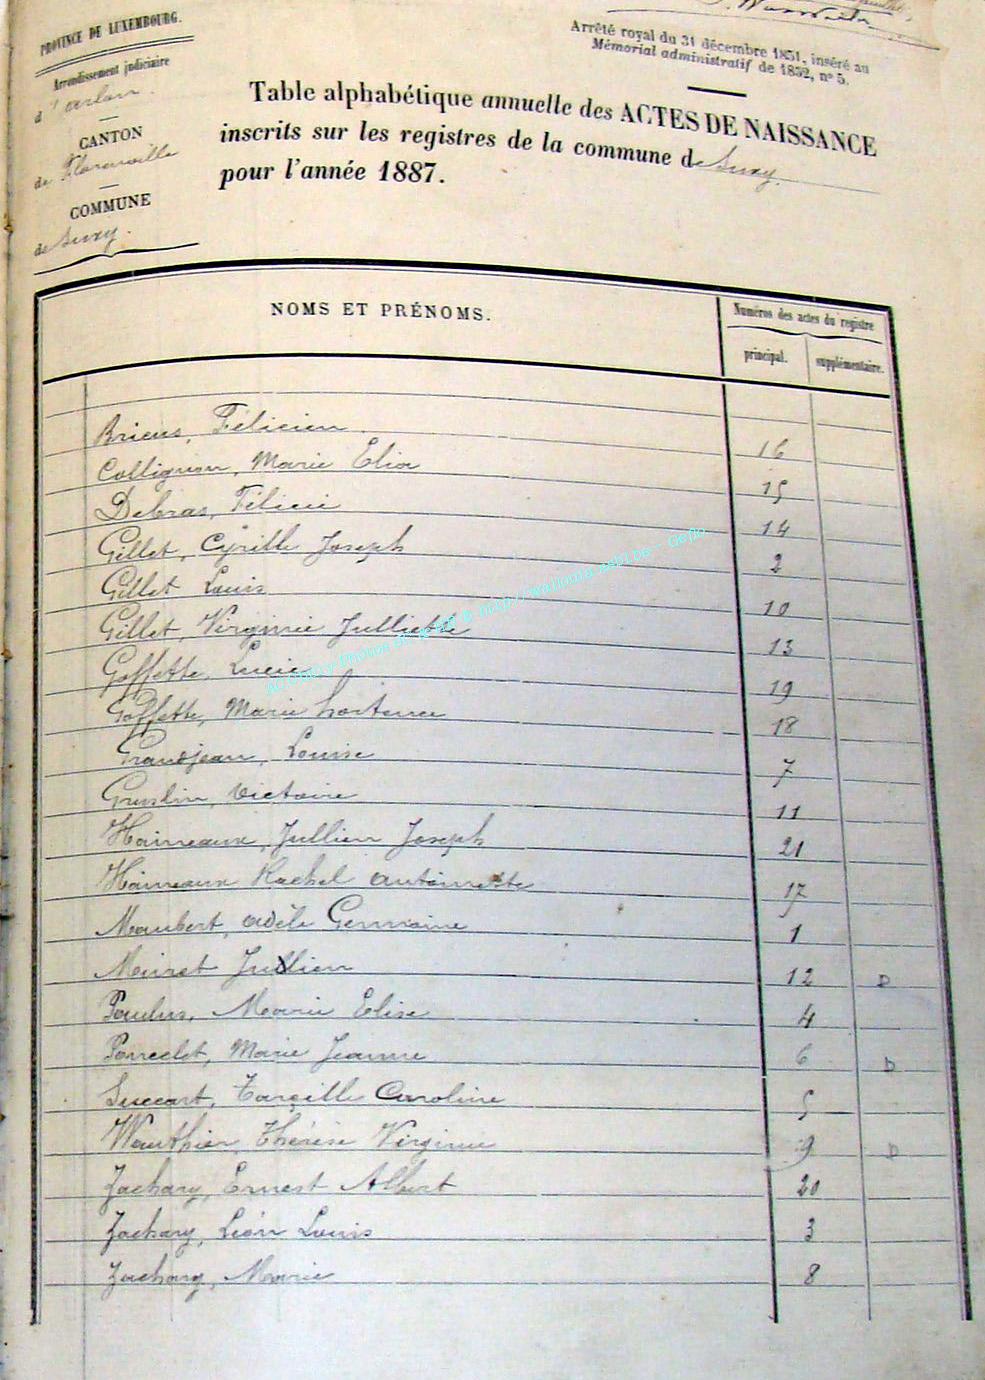 PROVINCE DE LUXEMBOURG.
Arrondissement judiciaire
d'arlon.
CANTON
de Florenville
COMMUNE
de Suxy.
Arrêté royal du 31 décembre 1851, inséré au
Mémorial administratif de 1852, n° 5.
Table alphabétique annuelle des ACTES DE NAISSANCE
inscrits sur les registres de la commune de Suxy.
pour l'année 1887.
NOMS ET PRÉNOMS.
Numéros des actes du registre
principal. supplémentaire.
Briens, Félicien. 16
Collignon, Marie Elia 15
Debras, Félicie 14
Gillet, Cyrille Joseph 2
Gillet Louis 10
Gillet, Virginie Julliette 13
Goffette, Lucie 19
Goffette, Marie hortence 18
Grandjean, Louise 7
Gruslin, Victoire 11
Haineaux, Jullien Joseph 21
Haineaux Rachel antoinette 17
Maubert, adèle Germaine 1
Meiret Jullien 12 D
Paulus, Marie Elise 4
Poncelet, Marie Jeanne 6 D
Succart, Tarçille Caroline 5
Wauthier Thérèse Virginie 9 D
Zachary, Ernest Albert 20
Zachary, Léon Louis 3
Zachary, Marie 8